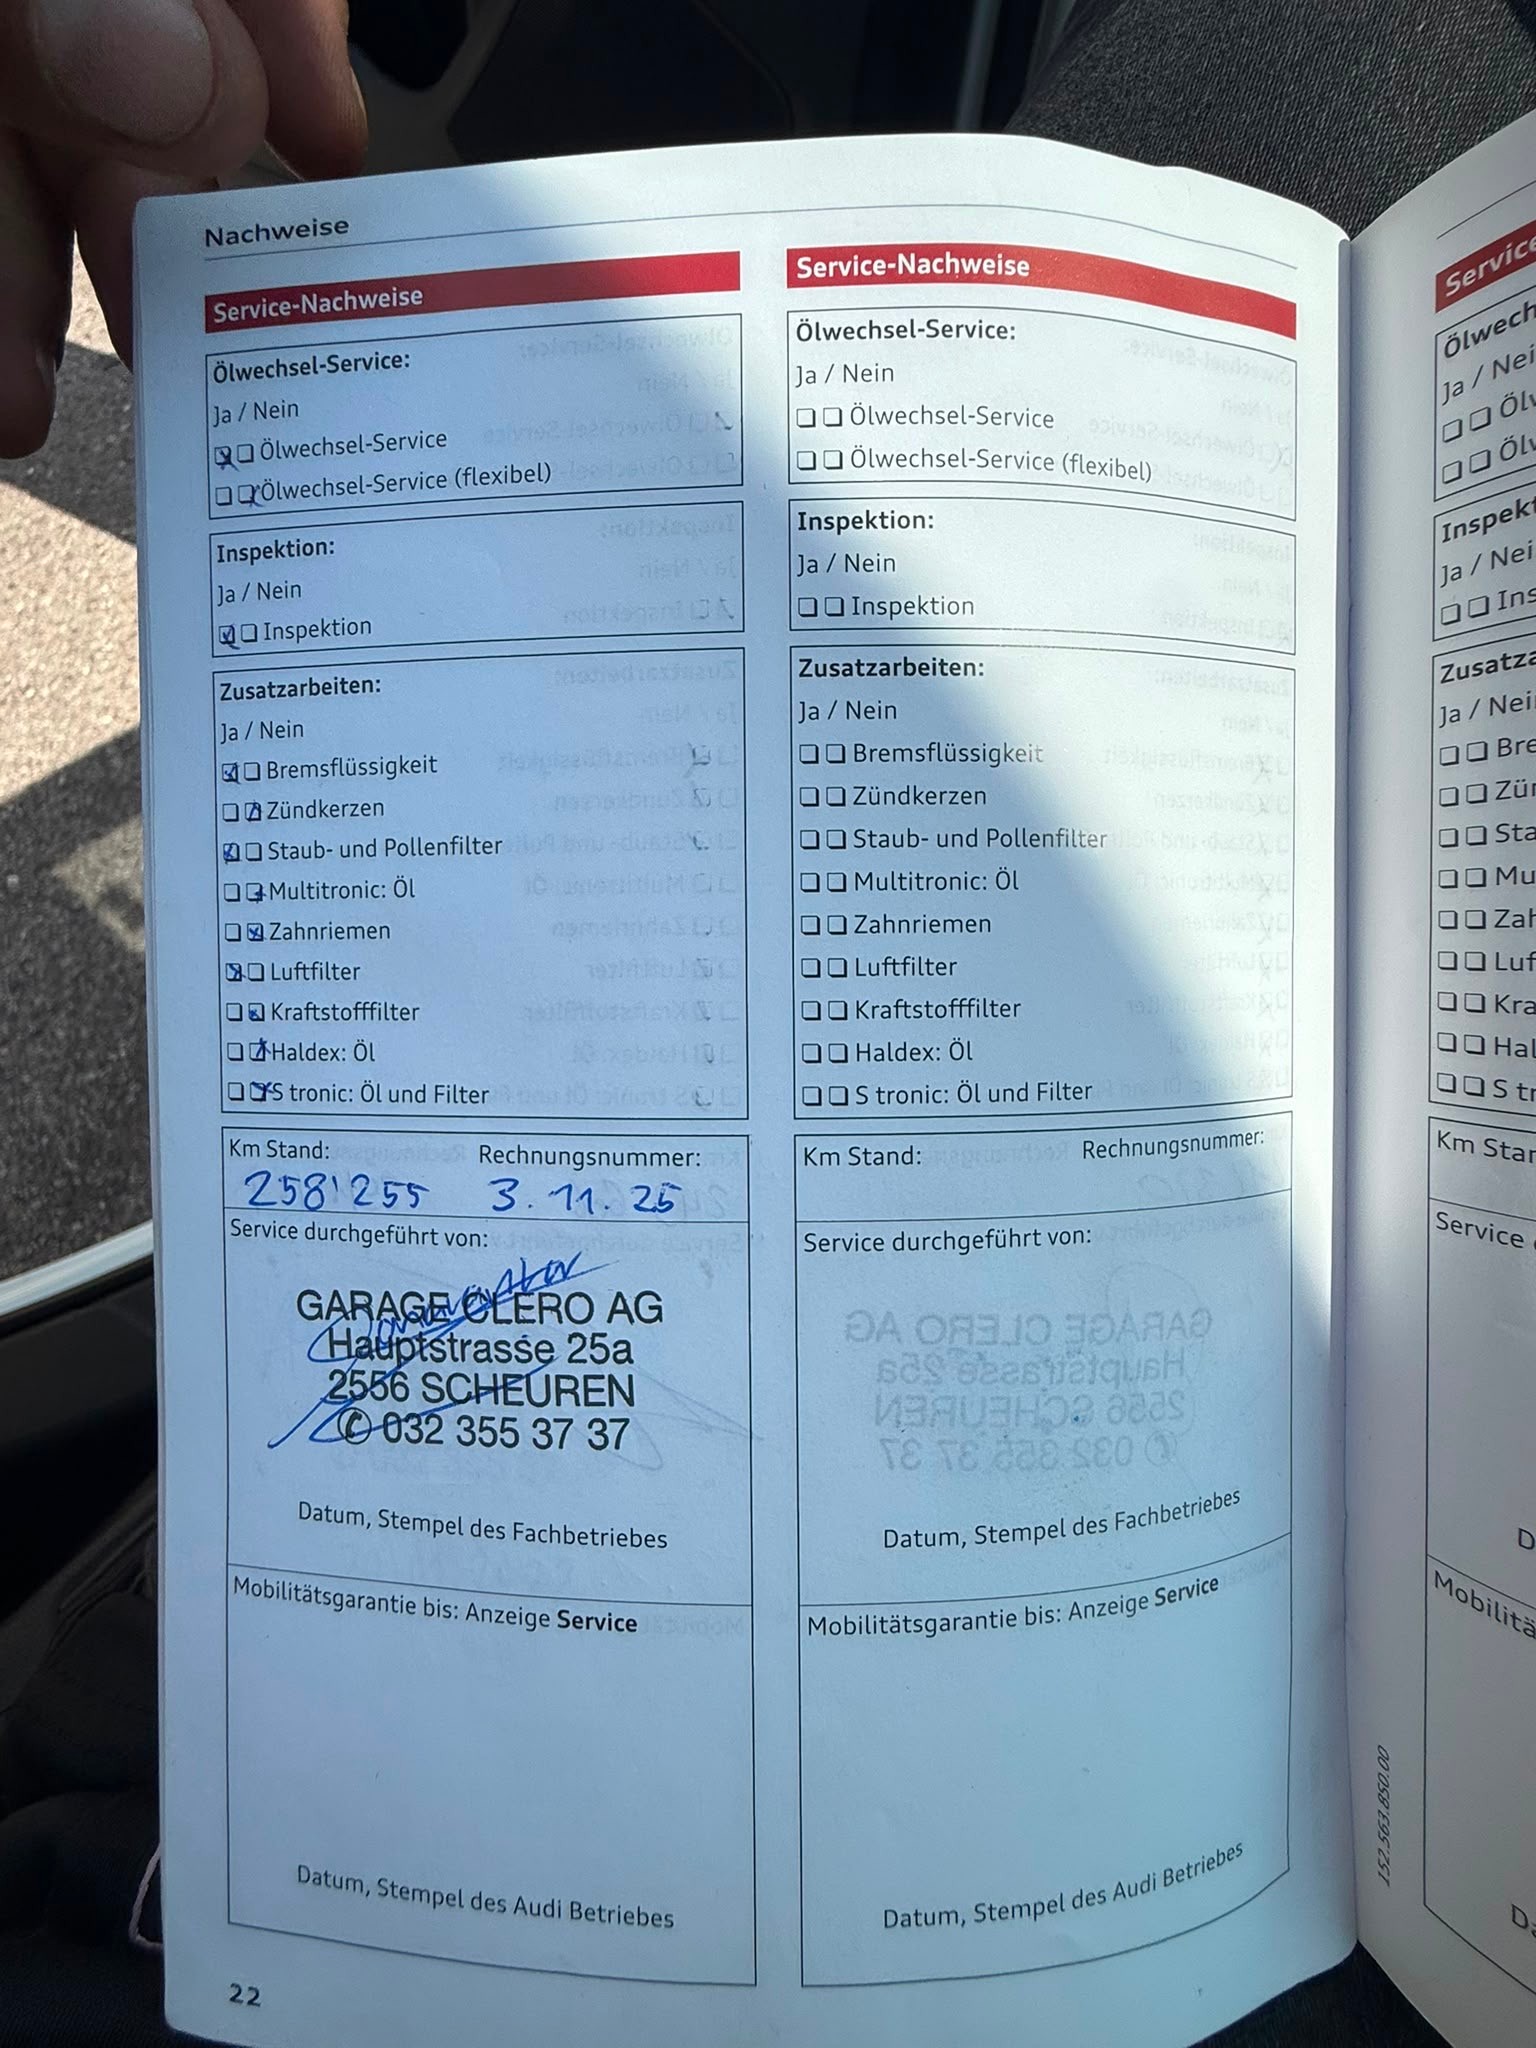 Nachweise
Service-Nachweise
Ölwechsel-Service:
Ja / Nein
Ölwechsel-Service
Ölwechsel-Service (flexibel)
Inspektion:
Ja / Nein
Inspektion
Zusatzarbeiten:
Ja / Nein
Bremsflüssigkeit
Zündkerzen
Staub- und Pollenfilter
Multitronic: Öl
Zahnriemen
Luftfilter
Kraftstofffilter
Haldex: Öl
S tronic: Öl und Filter
Km Stand: Rechnungsnummer:
258'255 3.11.25
Service durchgeführt von:
GARAGE CLERO AG
Hauptstrasse 25a
2556 SCHEUREN
✆ 032 355 37 37
Datum, Stempel des Fachbetriebes
Mobilitätsgarantie bis: Anzeige Service
Datum, Stempel des Audi Betriebes
22
Service-Nachweise
Ölwechsel-Service:
Ja / Nein
Ölwechsel-Service
Ölwechsel-Service (flexibel)
Inspektion:
Ja / Nein
Inspektion
Zusatzarbeiten:
Ja / Nein
Bremsflüssigkeit
Zündkerzen
Staub- und Pollenfilter
Multitronic: Öl
Zahnriemen
Luftfilter
Kraftstofffilter
Haldex: Öl
S tronic: Öl und Filter
Km Stand: Rechnungsnummer:
Service durchgeführt von:
Datum, Stempel des Fachbetriebes
Mobilitätsgarantie bis: Anzeige Service
Datum, Stempel des Audi Betriebes
152.563.850.00
Service
Ölwech
Ja / Nei
Öl
Öl
Inspekt
Ja / Nei
Ins
Zusatza
Ja / Nei
Bre
Zün
Sta
Mu
Zah
Luf
Kra
Hal
S tr
Km Star
Service
D
Mobilitä
Da